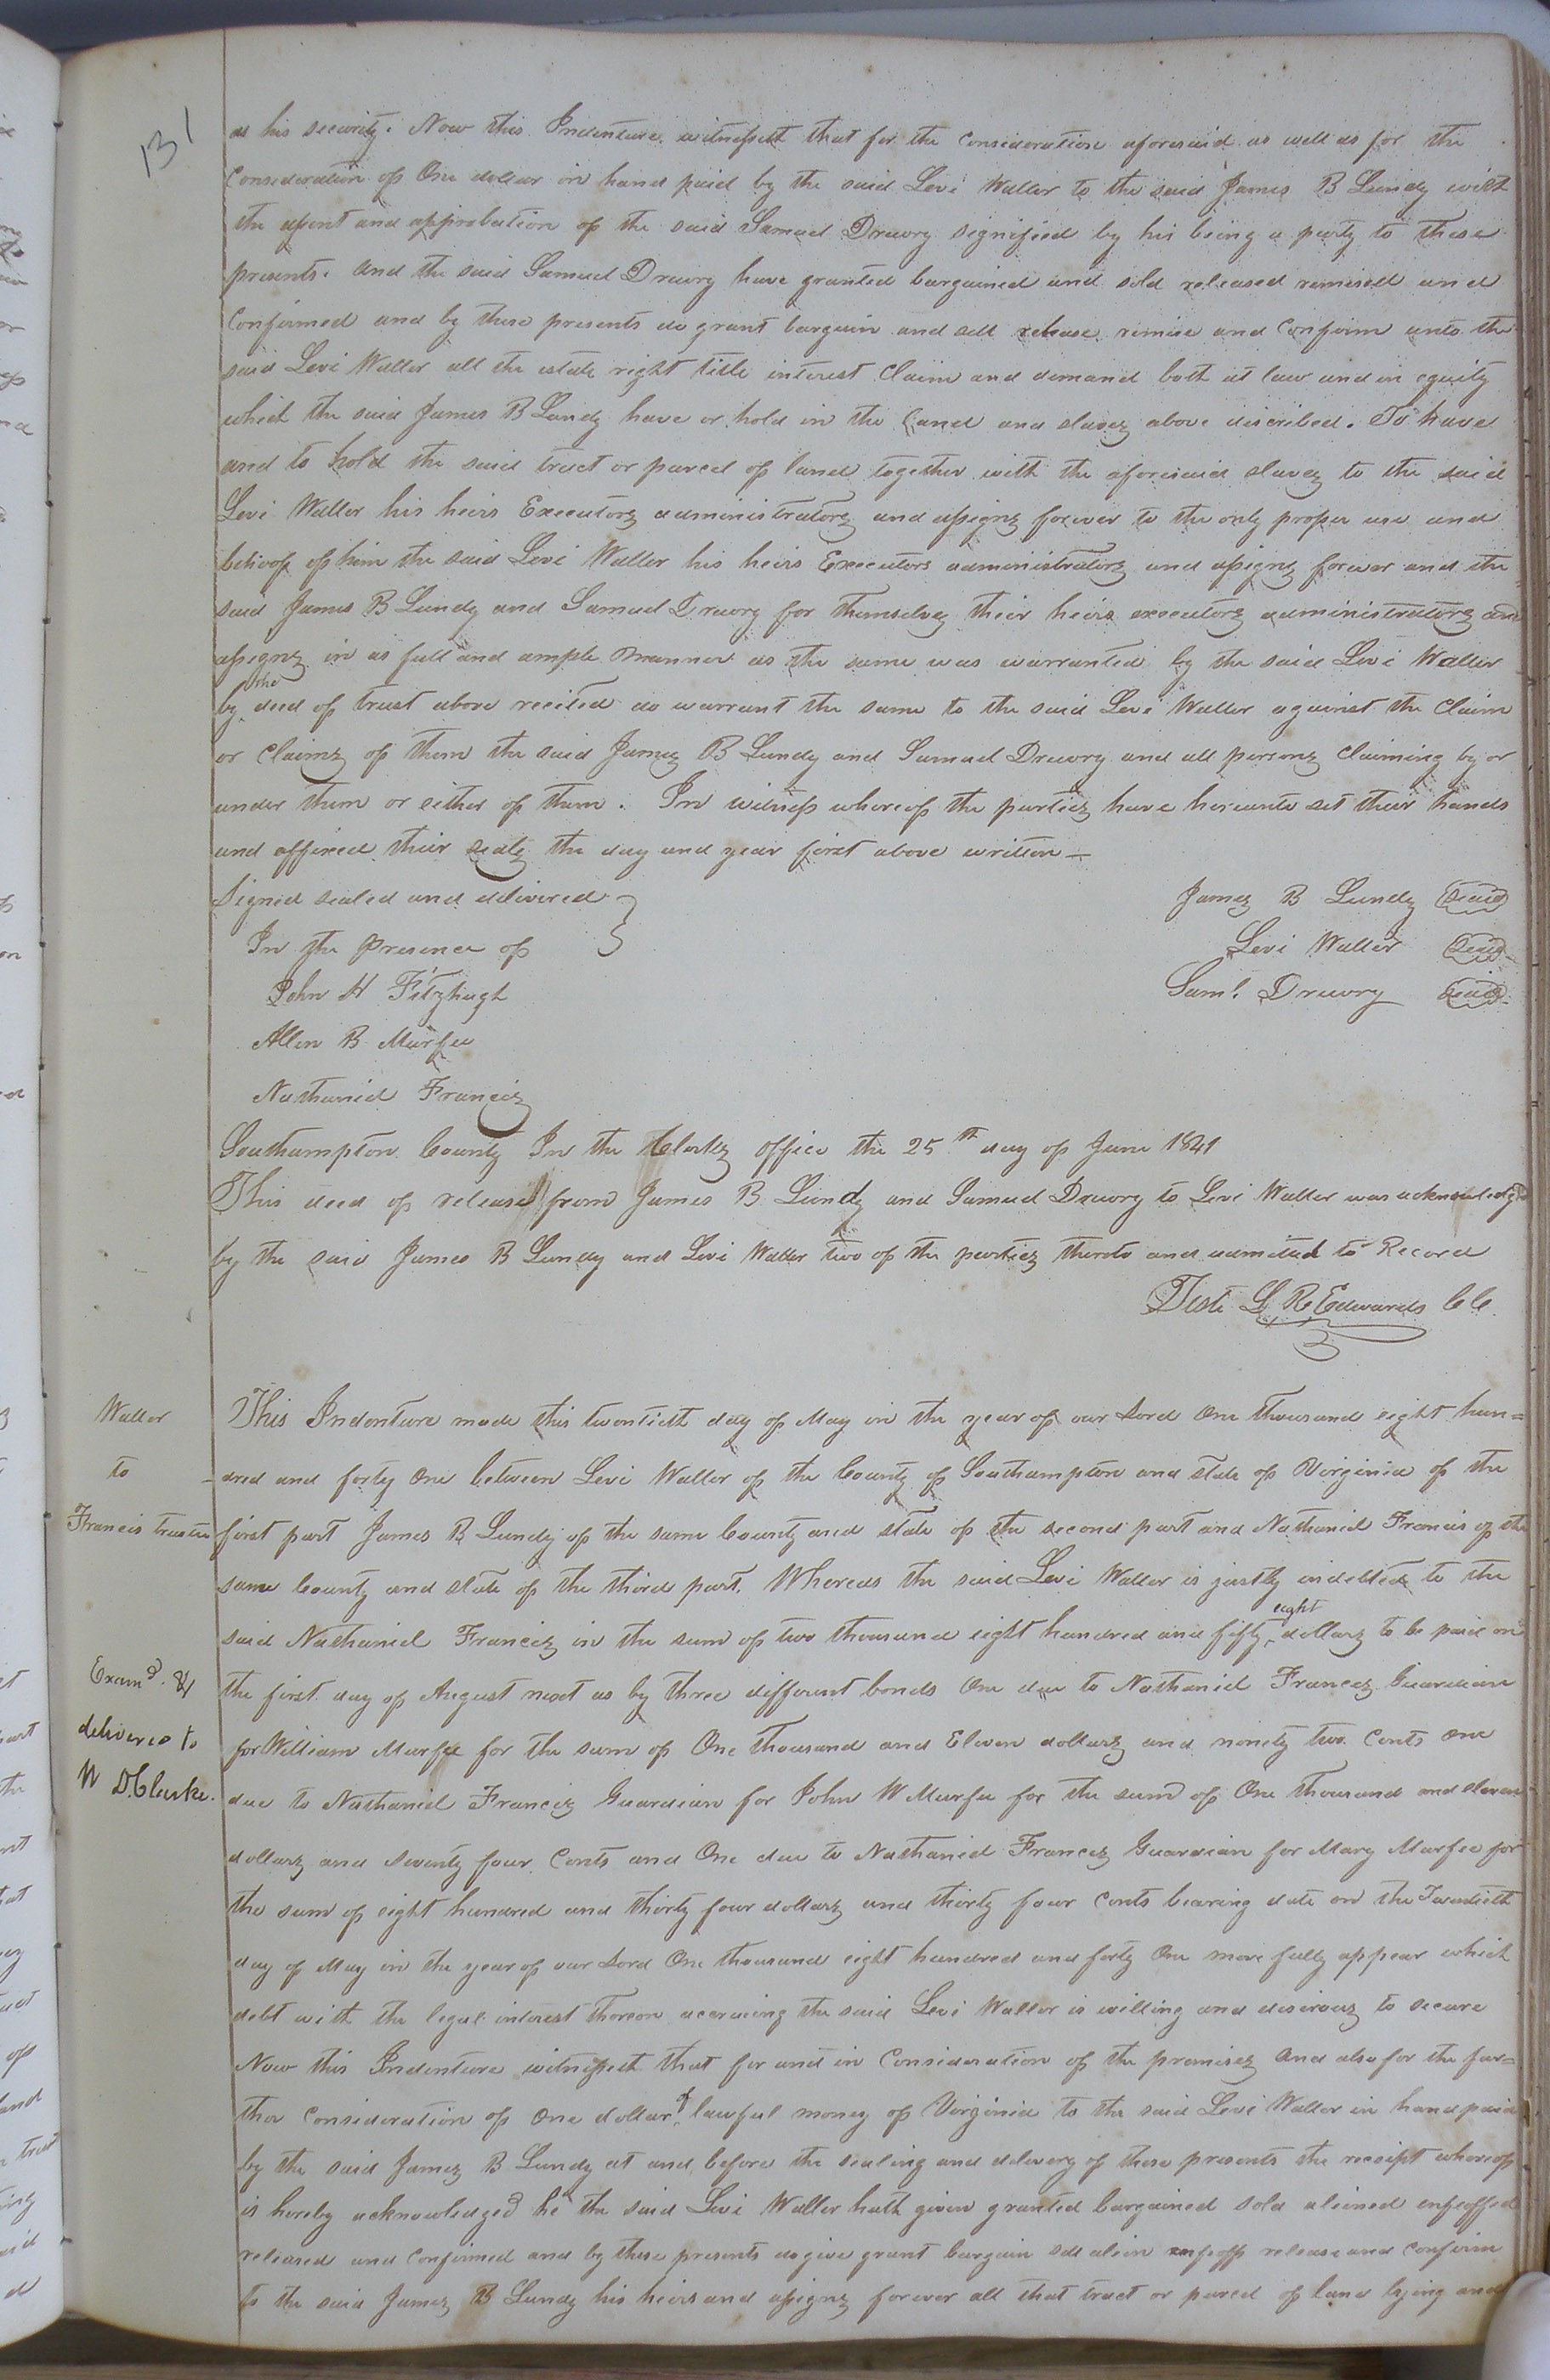 131
as his security. Now this Indenture witnesseth that for the Consideration aforesaid as well as for the
Consideration of One dollar in hand paid by the said Levi Waller to the said James B Lundy with
the assent and approbation of the said Samuel Drewry signified by his being a party to these
presents. and the said Samuel Drewry have granted bargained and sold released remised and
Confirmed and by these presents do grant bargain and sell release remise and Confirm unto the
said Levi Waller all the estate right title interest Claim and demand both at law and in equity
which the said James B Lundy have or hold in the land and slaves above discribed. To have
and to hold the said tract or parcel of land together with the aforesaid slaves to the said
Levi Waller his heirs Executors administrators and assigns forever to the only proper use and
behoof of him the said Levi Waller his heirs Executors administrators and assigns forever and the
said James B Lundy and Samuel Drewry for themselves their heirs executors administrators and
assigns in as full and ample Manner as the same was warranted by the said Levi Waller
by the deed of trust above recited do warrant the same to the said Levi Waller against the Claim
or Claims of them the said James B Lundy and Samuel Drewry and all persons Claiming by or
under them or either of them. In witness whereof the parties have hereunto set their hands
and affixed their seals the day and year first above written —
Signed sealed and delivered } James B Lundy Seal
In the Presence of Levi Waller Seal
John H Fitzhugh Saml. Drewry Seal
Allen B Murfee
Nathaniel Francis
Southampton County In the Clerks office the 25th day of June 1841
This deed of release from James B Lundy and Samuel Drewry to Levi Waller was acknowledged
by the said James B Lundy and Levi Waller two of the parties thereto and admitted to Record
Teste L R Edwards CC
Waller
to
Francis trustee
This Indenture made this twentieth day of May in the year of our Lord One thousand eight hun=
dred and forty One between Levi Waller of the County of Southampton and state of Virginia of the
first part James B Lundy of the same County and state of the second part and Nathaniel Francis of the
same County and state of the third part. Whereas the said Levi Waller is justly indebted to the
said Nathaniel Francis in the sum of two thousand eight hundred and fifty eight dollars to be paid on
Examd. &
delivered to
W D. Clarke.
the first day of August next as by three different bonds One due to Nathaniel Francis Guardian
for William Murfee for the sum of One thousand and Eleven dollars and ninety two Cents One
due to Nathaniel Francis Guardian for John W Murfee for the sum of One thousand and eleven
dollars and seventy four Cents and One due to Nathaniel Francis Guardian for Mary Murfee for
the sum of eight hundred and thirty four dollars and thirty four Cents bearing date on the Twentieth
day of May in the year of our Lord One thousand eight hundred and forty One more fully appear which
debt with the legal interest thereon accruing the said Levi Waller is willing and desirous to secure
Now this Indenture witnesseth that for and in Consideration of the premises and also for the fur=
ther Consideration of one dollar of lawful money of Virginia to the said Levi Waller in hand paid
by the said James B Lundy at and before the sealing and delivery of these presents the receipt whereof
is hereby acknowledged he the said Levi Waller hath given granted bargained sold aliened enfeoffed
released and Confirmed and by these presents do give grant bargain sell alien enfeoff release and confirm
to the said James B Lundy his heirs and assigns forever all that tract or parcel of land lying and